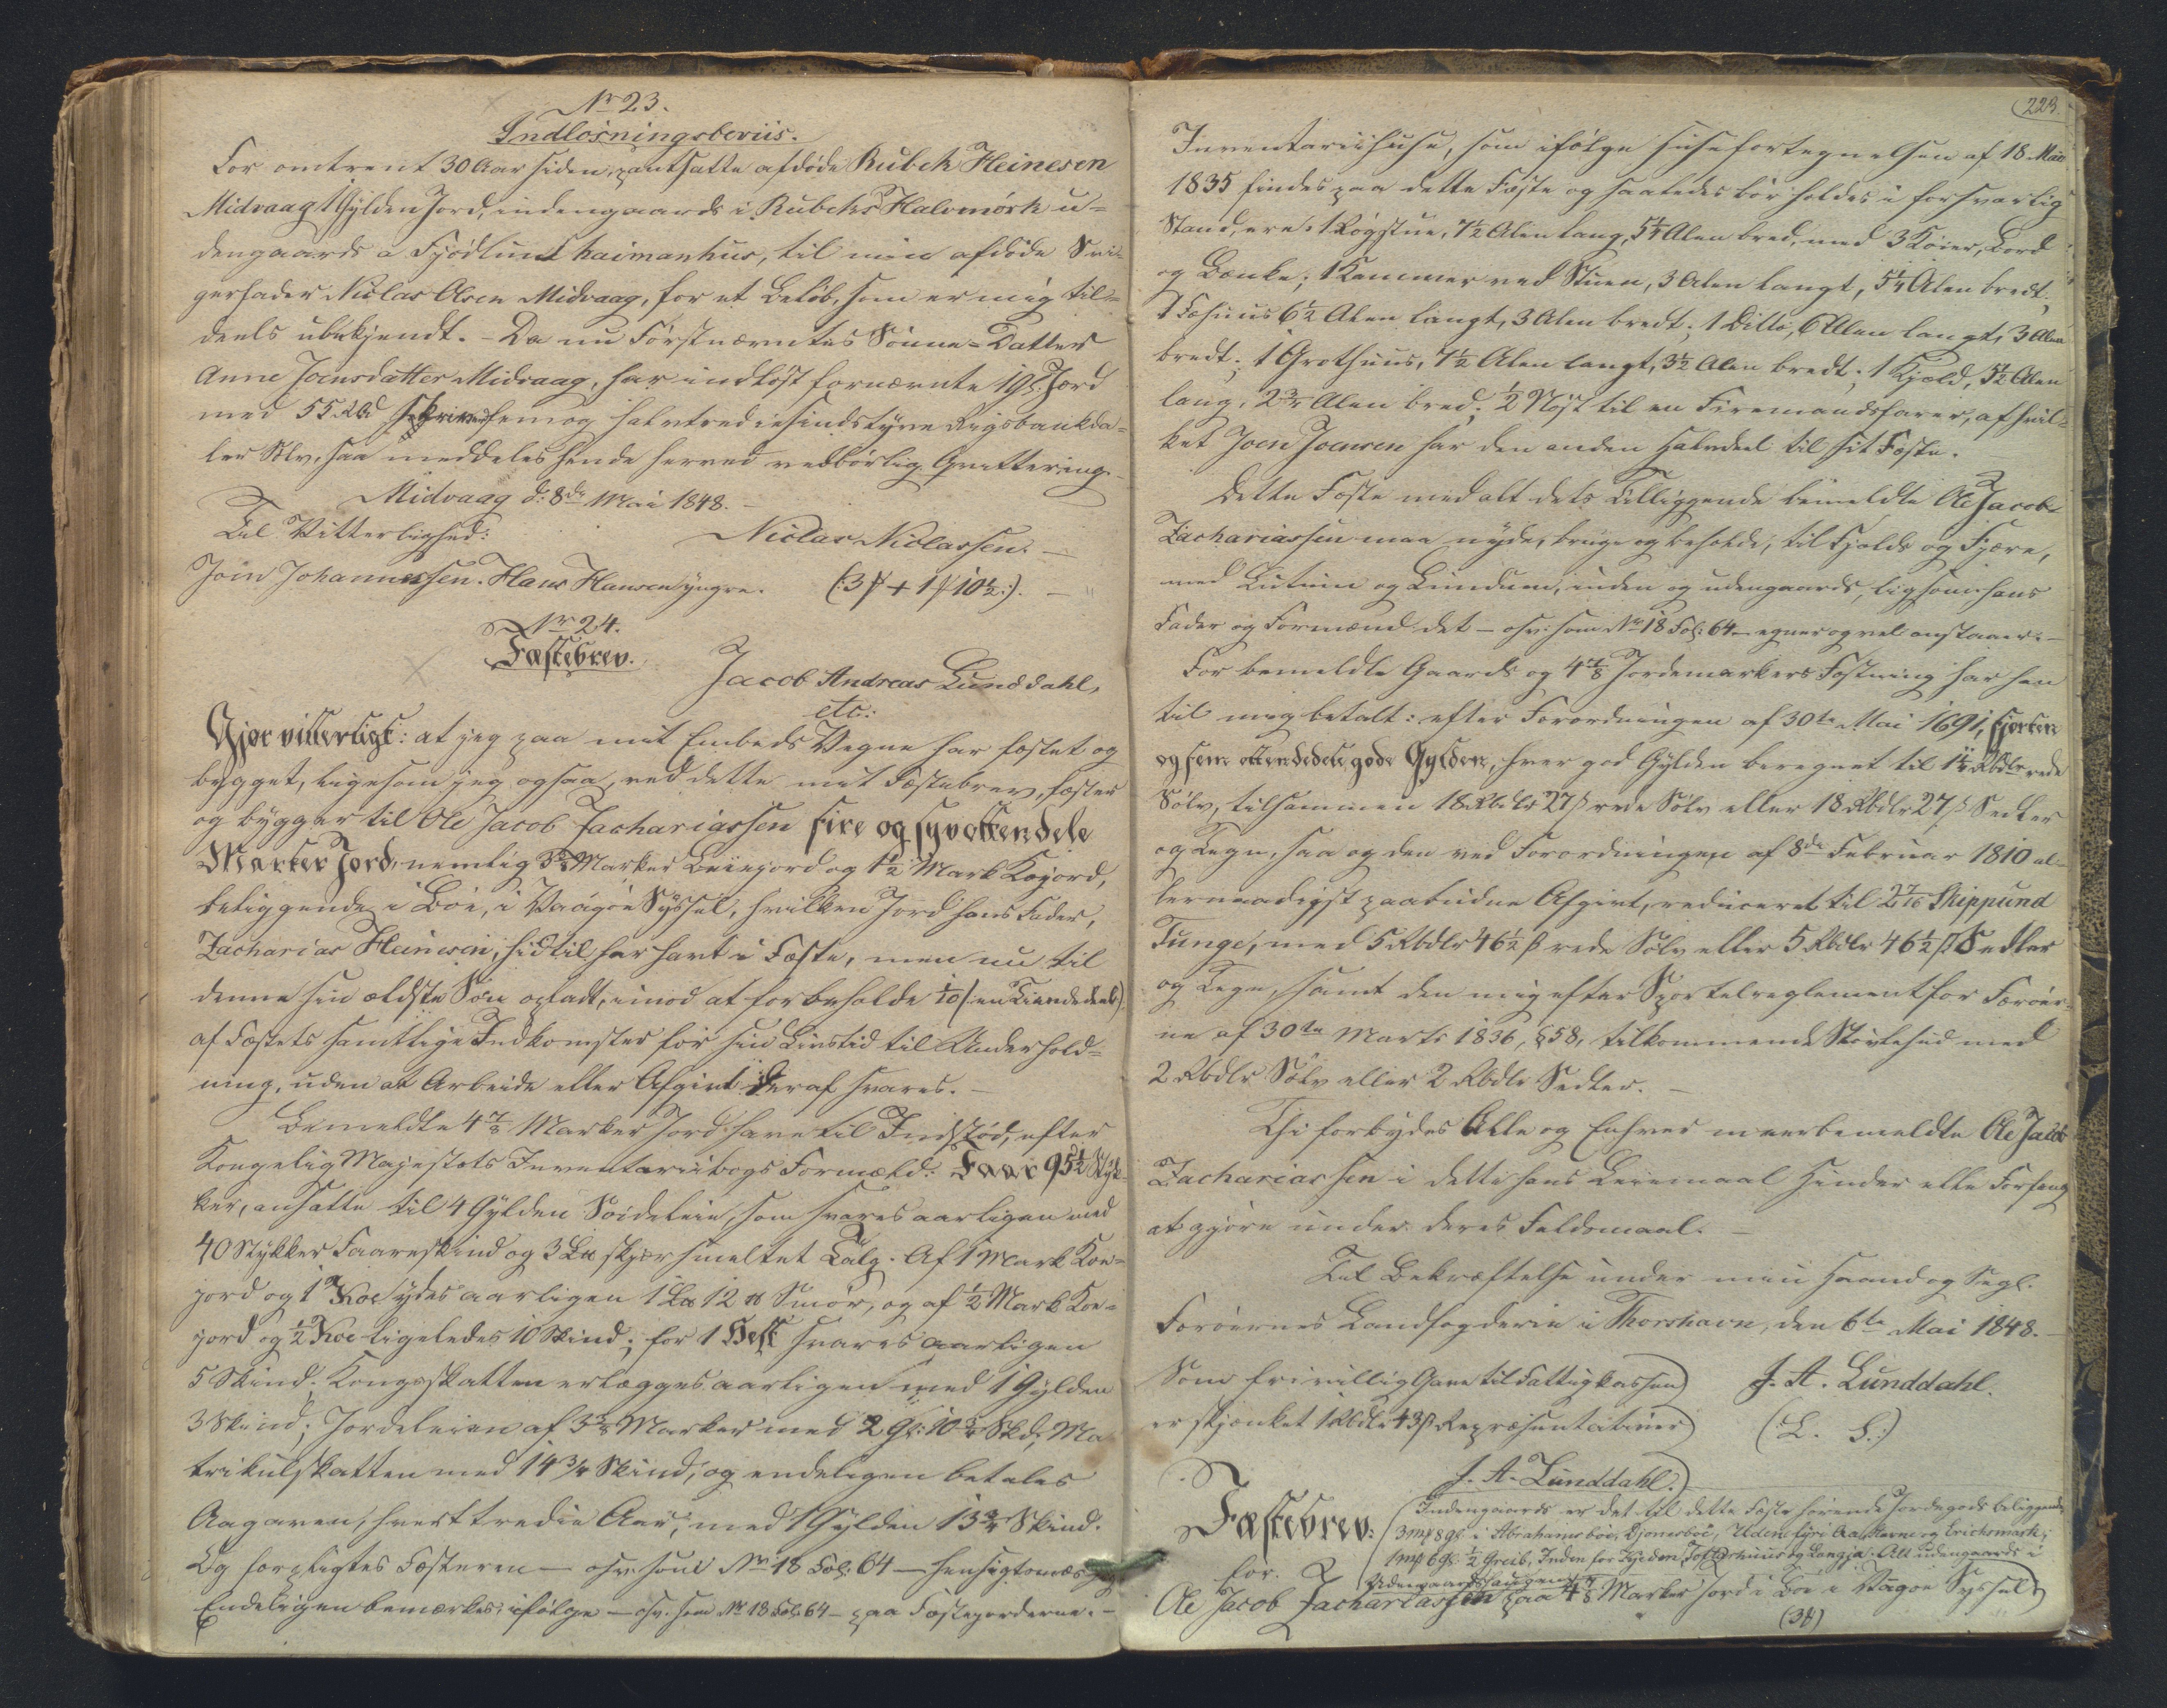 Nr 23.
Indløsningsbeviis.
For omtrent 30 Aar siden, pantsatte afdøde Rubek Heinesen
Midvaag 1 Gylden Jord, indengaards i Rubeks Halvmörk u-
dengaards a Fjødlun haimanhus, til min afdøde Svi-
gerfader Niclas Olsen Midvaag, for et Beløb, som er mig til-
deels ubekjendt. - Da nu Førstnævntes Sönne-Datter
Anne Joensdatter Midvaag, har indløst fornævnte 1 Gl. Jord
med 55 Rbd femog halvtredsindstyve Rigsbankda-
ler Sølv, saa meddeles hende herved vedbørlig Qvittering.
Midvaag d: 8de Mai 1848. -
Til Vitterlighed:
Niclas Niclassen. -
Join Johannessen. Hans Hansen yngre. (: 3 ß + 1 ß 10½ :). -
Nr 24.
Fæstebrev.
Jacob Andreas Lunddahl,
etc:
Gjør vitterligt: at jeg paa mit Embeds Vegne har fæstet og
bygget, ligesom jeg ogsaa, ved dette mit Fæstebrev, fæster
og bygger til Ole Jacob Zachariassen fire og syvottendele
Marker Jord, nemlig 3⅜ Marker Leiejord og 1½ Mark Kojord,
beliggende i Böe, i Vaagöe Syssel, hvilken Jord hans Fader,
Zacharias Heinesen, hidtil har havt i Fæste, men nu til
denne sin ældste Søn opladt, imod at forbeholde 1/10 (: en Tiendedeel :)
af Fæstets samtlige Indkomster for sin Livstid til Underhold-
ning, uden at Arbeide eller Afgivt deraf svares. -
Bemeldte 4⅞ Marker Jord have til Indstød, efter
Kongelig Majestæts Inventariibogs Formæld: Faar 95½ Styk-
ker, ansatte til 4 Gylden Soideleie, som svares aarligen med
40 Stykker Faareskind og 3 L℔ skjær smeltet Talg. Af 1 Mark Koe-
jord og 1 Koe ydes aarligen 1 L℔ 12 ℔ Smør, og af ½ Mark Koe-
jord og ½ Koe ligeledes 10 Skind; for 1 Hest svares aarligen
5 Skind. Kongsskatten erlægges aarligen med 1 Gylden
3 Skind; Jordeleien af 3⅜ Marker med 2 Gl: 10¾ Skd; Ma-
trikulskatten med 14¾ Skind, og endeligen betales
Aagaven, hvert tredie Aar, med 1 Gylden 13¾ Skind.
Og forpligtes Fæsteren - osv. som Nr 18 Fol. 64 - hensigtsmæssig
Endeligen bemærkes, ifølge - osv. som Nr 18 Fol. 64 - paa Fæstegorderne. -
223.
Inventariihuse, som ifølge Huusfortegnelsen af 18 Mai
1835 findes paa dette Fæste og saaledes bør holdes i forsvarlig
Stand, ere: 1 Røgstue, 7½ Alen lang, 5¼ Alen bred, med 3 Køier, Bord
og Bænke; 1 Kammer ved Stuen, 3 Alen langt, 5¼ Alen bredt;
1 Fæhuus 6½ Alen langt, 3 Alen bredt; 1 Ditto, 6 Alen langt, 3 Alen
bredt; 1 Grothuus, 7½ Alen langt, 3½ Alen bredt; 1 Kjæld, 5½ Alen
lang, 2¾ Alen bred; ½ Nøst til en Firemandsfarer, af hvil-
ket Joen Joensen har den anden Halvdeel til sit Fæste.
Dette Fæste med alt dets Tilliggende bemeldte Ole Jacob
Zachariassen maa nyde, bruge og beholde, til Fjelds og Fjære,
med Luttum og Lunduum, inden og udengaards, ligesom hans
Fader og Formænd det - osv. som Nr 18 Fol: 64 - egner og vel anstaaer. -
For bemeldte Gaards og 4⅞ Jordemarkers Fæstning har han
til mig betalt: efter Forordningen af 30te Mai 1691, fjorten
og fem ottendedele gode Gylden, hver god Gylden beregnet til 1¼ Rbdlr rede
Sølv, tilsammen 18 Rbdlr 27 ß rede Sølv eller 18 Rbdlr 27 ß Sedler
og Tegn, saa og den ved Forordningen af 8de Februar 1810 al-
lernaadigst paabudne Afgivt, reduceret til 2 7/16 Skippund
Tunge, med 5 Rbdlr 46½ ß rede Sølv eller 5 Rbdlr 46½ ß Sedler
og Tegn, samt den mig efter Sportelreglement for Færöer-
ne af 30te Marts 1836, §58, tilkommende Støvlehud med
2 Rbdlr Sølv eller 2 Rbdlr Sedler. -
Thi forbydes Alle og Enhver meerbemeldte Ole Jacob
Zachariassen i dette hans Leiemaal Hinder elle Forfang
at gjøre under deres Faldsmaal. -
Til Bekræftelse under min Haand og Segl.
Færöernes Landfogderie i Thorshavn, den 6te Mai 1848. -
Som frivillig Gave til Fattigkassen
J. A. Lunddahl.
er skjænket 1 Rbdlr 43 ß Repræsentativer
(L. S.)
J. A. Lunddahl.
Fæstebrev:
Indengaards er det til dette Fæste hörende Jordegods beliggende
3 mß 8 gl. i Abrahamsböe, Djonesböe, Uldini fyri Aa, Herne og Erichsmark;
1 mß 6 gl. ½ Greib, Inden for Kjelden, Toftarhuus og Langja. Alt udengaards i
for.
Udengaardshaugen.
Ole Jacob Zachariassen paa 4⅞ Marker Jord i Böe i Vaagöe Syssel
(3ß)